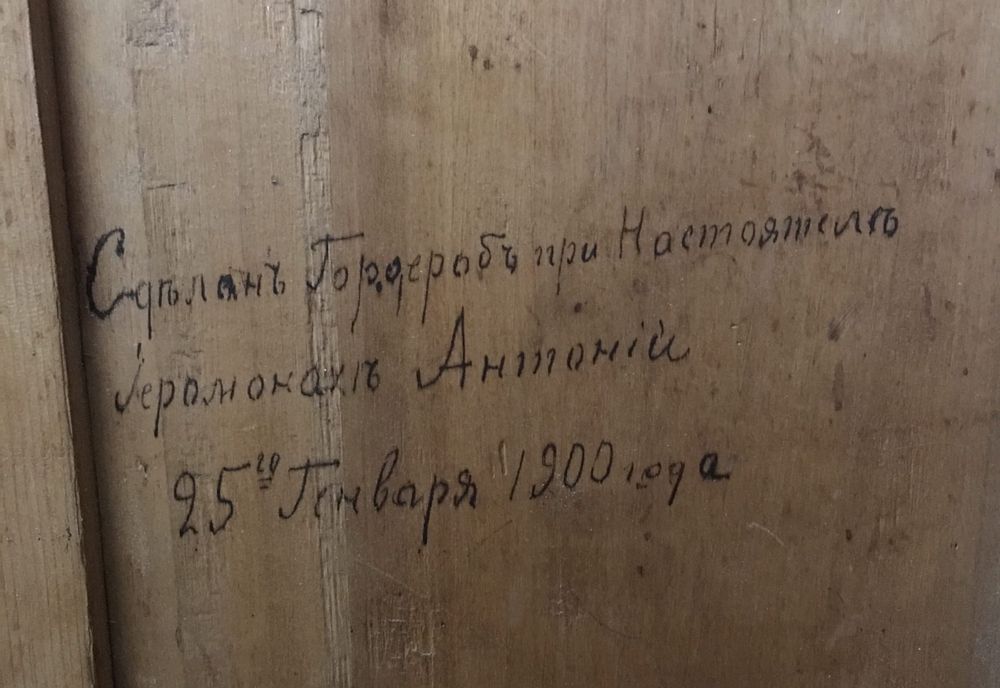 Сдѣланъ Гордеробъ при Настоятелѣ
Іеромонахѣ Антоній
25го Генваря 1900 года